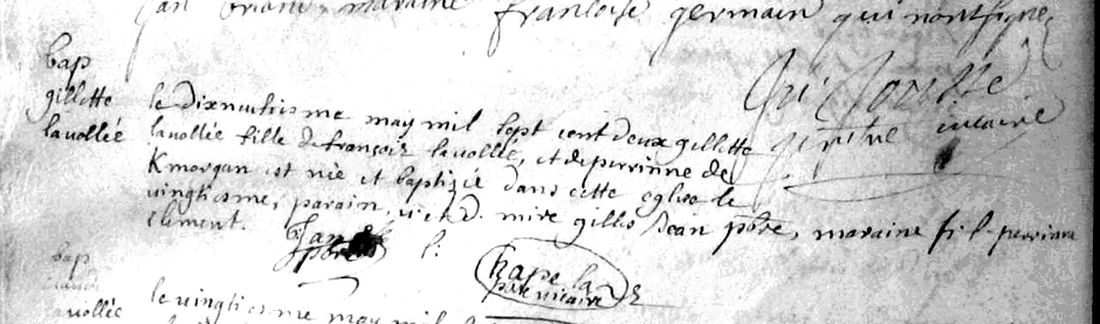 jan briand maraine francoise germain qui nont signe
bap
gillette
lavollée
le dixneufiesme may mil sept cent deux gillette
lavollée fille de françois lavollée, et de perrinne de
Kmorgan est née et baptizée dans cette eglise le
vingtiesme, parain, v. et d. mire gilles Jean pbre, maraine fil. perrinne
clement.
prtre vicaire
Jan
pbre
hape la
pbre vicaire
bap
vollée
le vingtiesme may mil